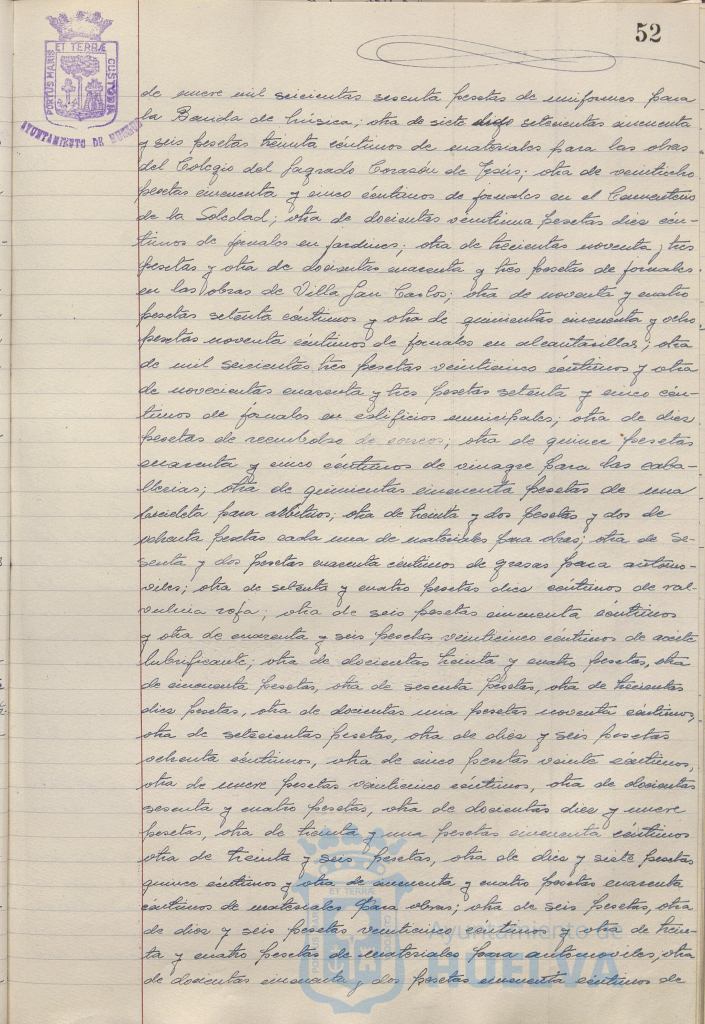 52
PORTUS MARIS ET TERRÆ CUSTODIA
AYUNTAMIENTO DE HUELVA
de nueve mil seicientas sesenta pesetas de uniformes para
la Banda de música; otra de siete digo setecientas cincuenta
y seis pesetas treinta céntimos de materiales para las obras
del Colegio del Sagrado Corazón de Jesús; otra de veintiocho
pesetas cincuenta y cinco céntimos de jornales en el Cementerio
de la Soledad; otra de docientas veintiuna pesetas diez cén-
timos de jornales en jardines; otra de trecientas noventa y tres
pesetas y otra de docientas cuarenta y tres pesetas de jornales
en las obras de Villa San Carlos; otra de noventa y cuatro
pesetas setenta céntimos y otra de quinientas cincuenta y ocho
pesetas noventa céntimos de jornales en alcantarillas; otra
de mil seicientas tres pesetas veinticinco céntimos y otra
de novecientas cuarenta y tres pesetas setenta y cinco cén-
timos de jornales en edificios municipales; otra de diez
pesetas de reembolso de; otra de quince pesetas
cuarenta y cinco céntimos de vinagre para las caba-
llerias; otra de quinientas cincuenta pesetas de una
bicicleta para arbitrios; otra de treinta y dos pesetas y dos de
ochenta pesetas cada una de materiales para obras; otra de se-
senta y dos pesetas cuarenta céntimos de grasas para automo-
viles; otra de setenta y cuatro pesetas diez céntimos de val-
vulina roja; otra de seis pesetas cincuenta céntimos
y otra de cuarenta y seis pesetas veinticinco céntimos de aceite
lubrificante; otra de docientas treinta y cuatro pesetas, otra
de cincuenta pesetas, otra de sesenta pesetas, otra de trecientas
diez pesetas, otra de docientas una pesetas noventa céntimos,
otra de setecientas pesetas, otra de diez y seis pesetas
ochenta céntimos, otra de cinco pesetas veinte céntimos,
otra de nueve pesetas veinticinco céntimos, otra de docientas
sesenta y cuatro pesetas, otra de docientas diez y nueve
pesetas, otra de treinta y una pesetas cincuenta céntimos
otra de treinta y seis pesetas, otra de diez y siete pesetas
quince céntimos y otra de cincuenta y cuatro pesetas cuarenta
céntimos de materiales para obras; otra de seis pesetas, otra
de diez y seis pesetas veinticinco céntimos y otra de trein-
ta y cuatro pesetas de materiales para automoviles; otra
de docientas cincuenta y dos pesetas cincuenta céntimos de
PORTUS MARIS ET TERRÆ CUSTODIA
Ayuntamiento de
HUELVA